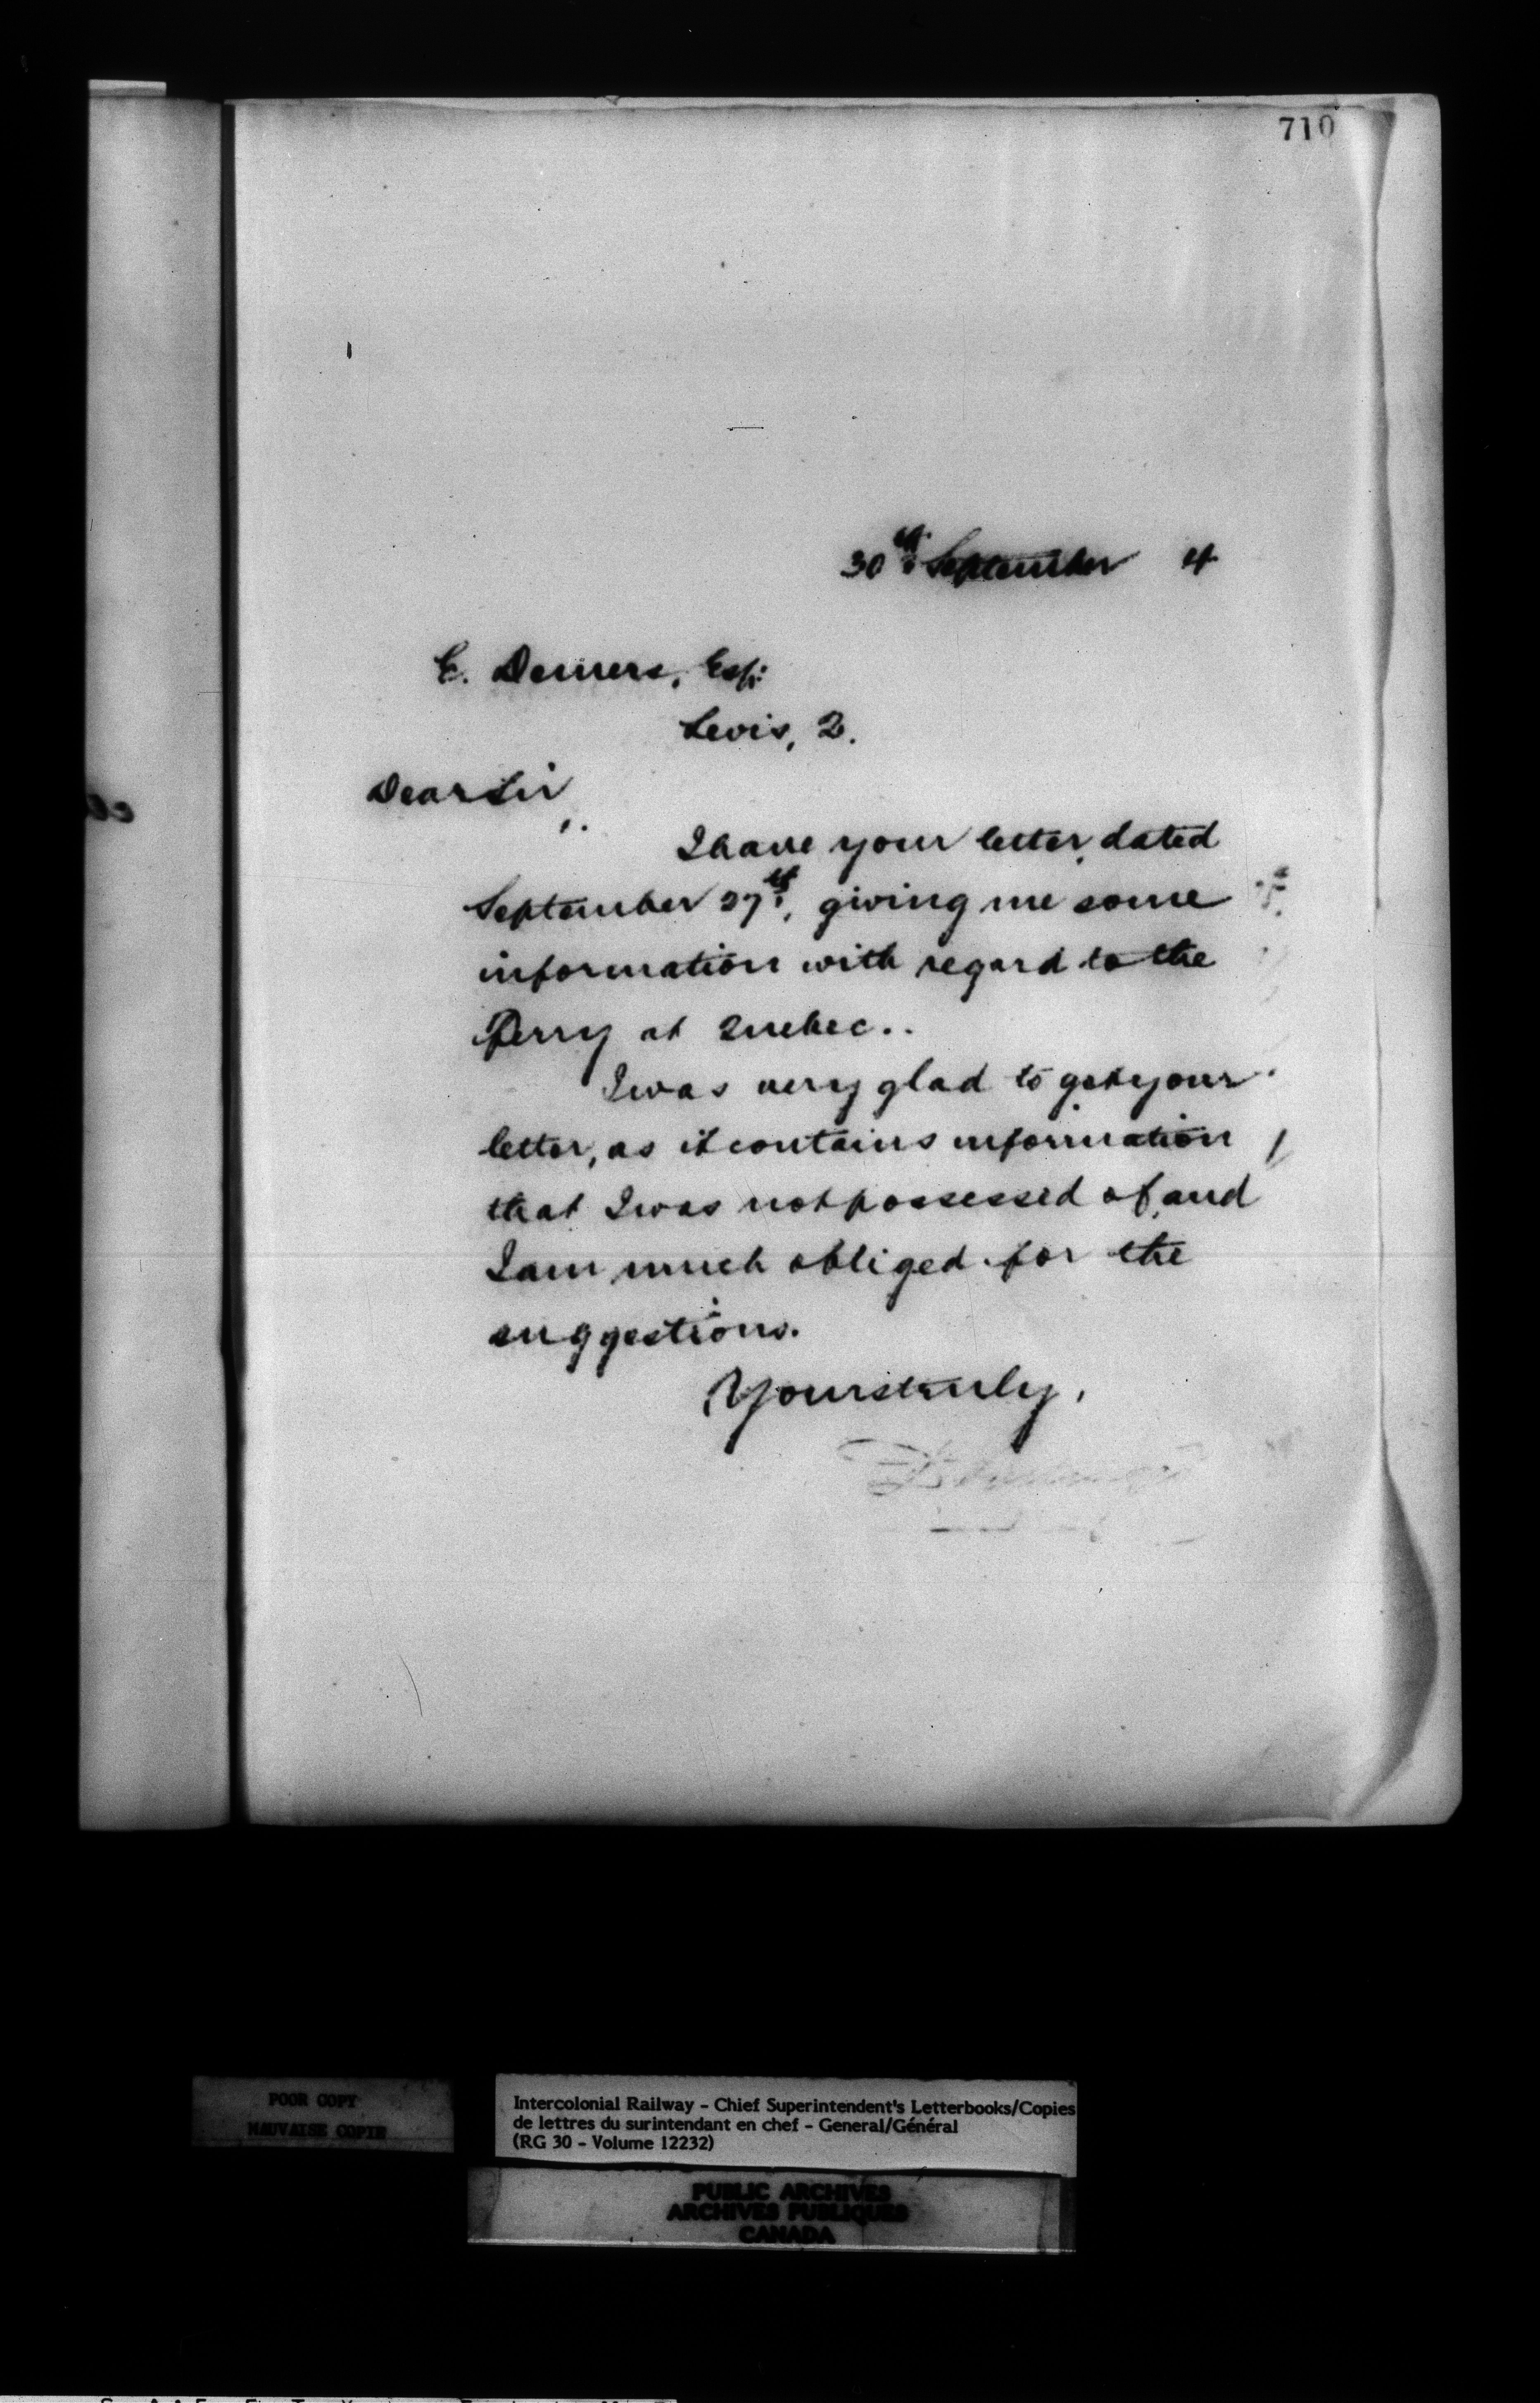 710
30th September 4
E. Demers, Esq:
Levis, Q.
Dear Sir,
I have your letter, dated
September 27th, giving me some
information with regard to the
Ferry at Quebec..
I was very glad to get your
letter, as it contains information
that I was not possessed of, and
I am much obliged for the
suggestions.
Yours truly,
POOR COPY
MAUVAISE COPIE
Intercolonial Railway - Chief Superintendent's Letterbooks/Copies
de lettres du surintendant en chef - General/Général
(RG 30 - Volume 12232)
PUBLIC ARCHIVES
ARCHIVES PUBLIQUES
CANADA